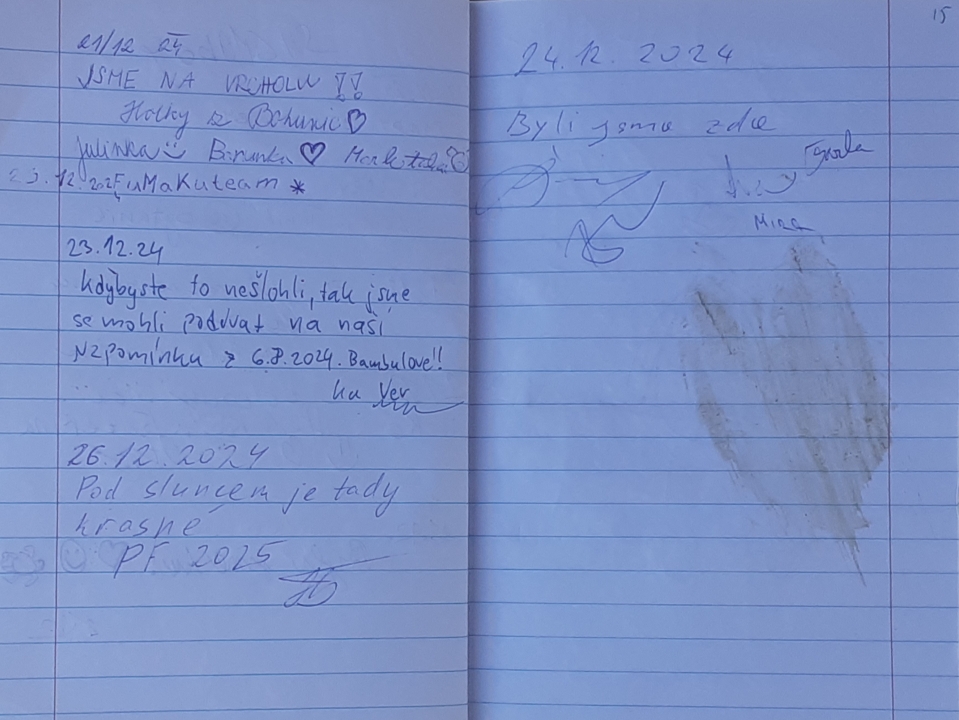 21/12 24
JSME NA VRCHOLU !!
Holky z Bohunic
Julinka Barunka Markétka
23.12.2024 MaKuteam *
23.12.24
kdybyste to nešlohli, tak jsme
se mohli podívat na naší
vzpomínku z 6.8.2024. Bambulove!!
Ka Ver
26.12.2024
Pod sluncem je tady
krásné
PF 2025
15
24.12.2024
Byli jsme zde
Mira